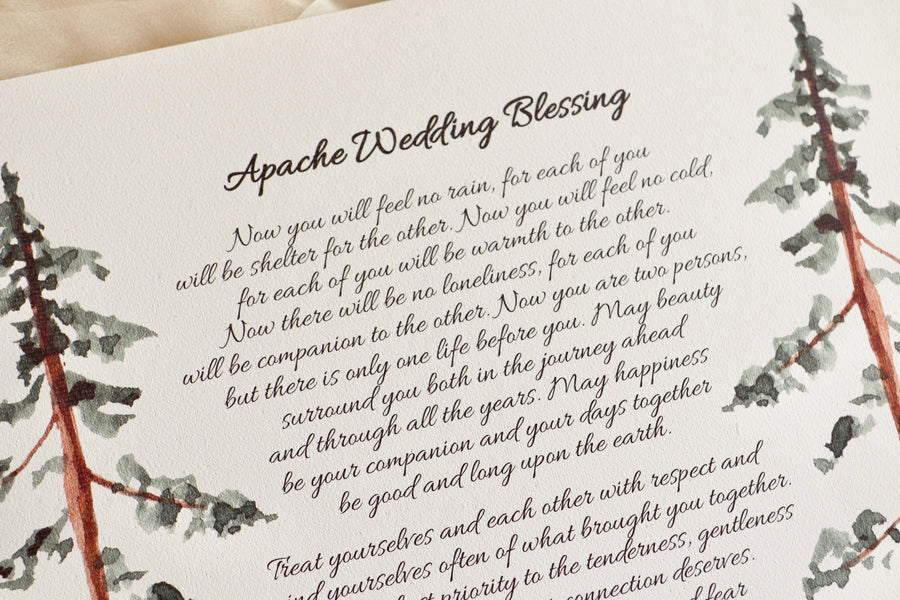 Apache Wedding Blessing
Now you will feel no rain, for each of you
will be shelter for the other. Now you will feel no cold,
for each of you will be warmth to the other.
Now there will be no loneliness, for each of you
will be companion to the other. Now you are two persons,
but there is only one life before you. May beauty
surround you both in the journey ahead
and through all the years. May happiness
be your companion and your days together
be good and long upon the earth.
Treat yourselves and each other with respect and
yourselves often of what brought you together.
priority to the tenderness, gentleness
connection deserves.
fear